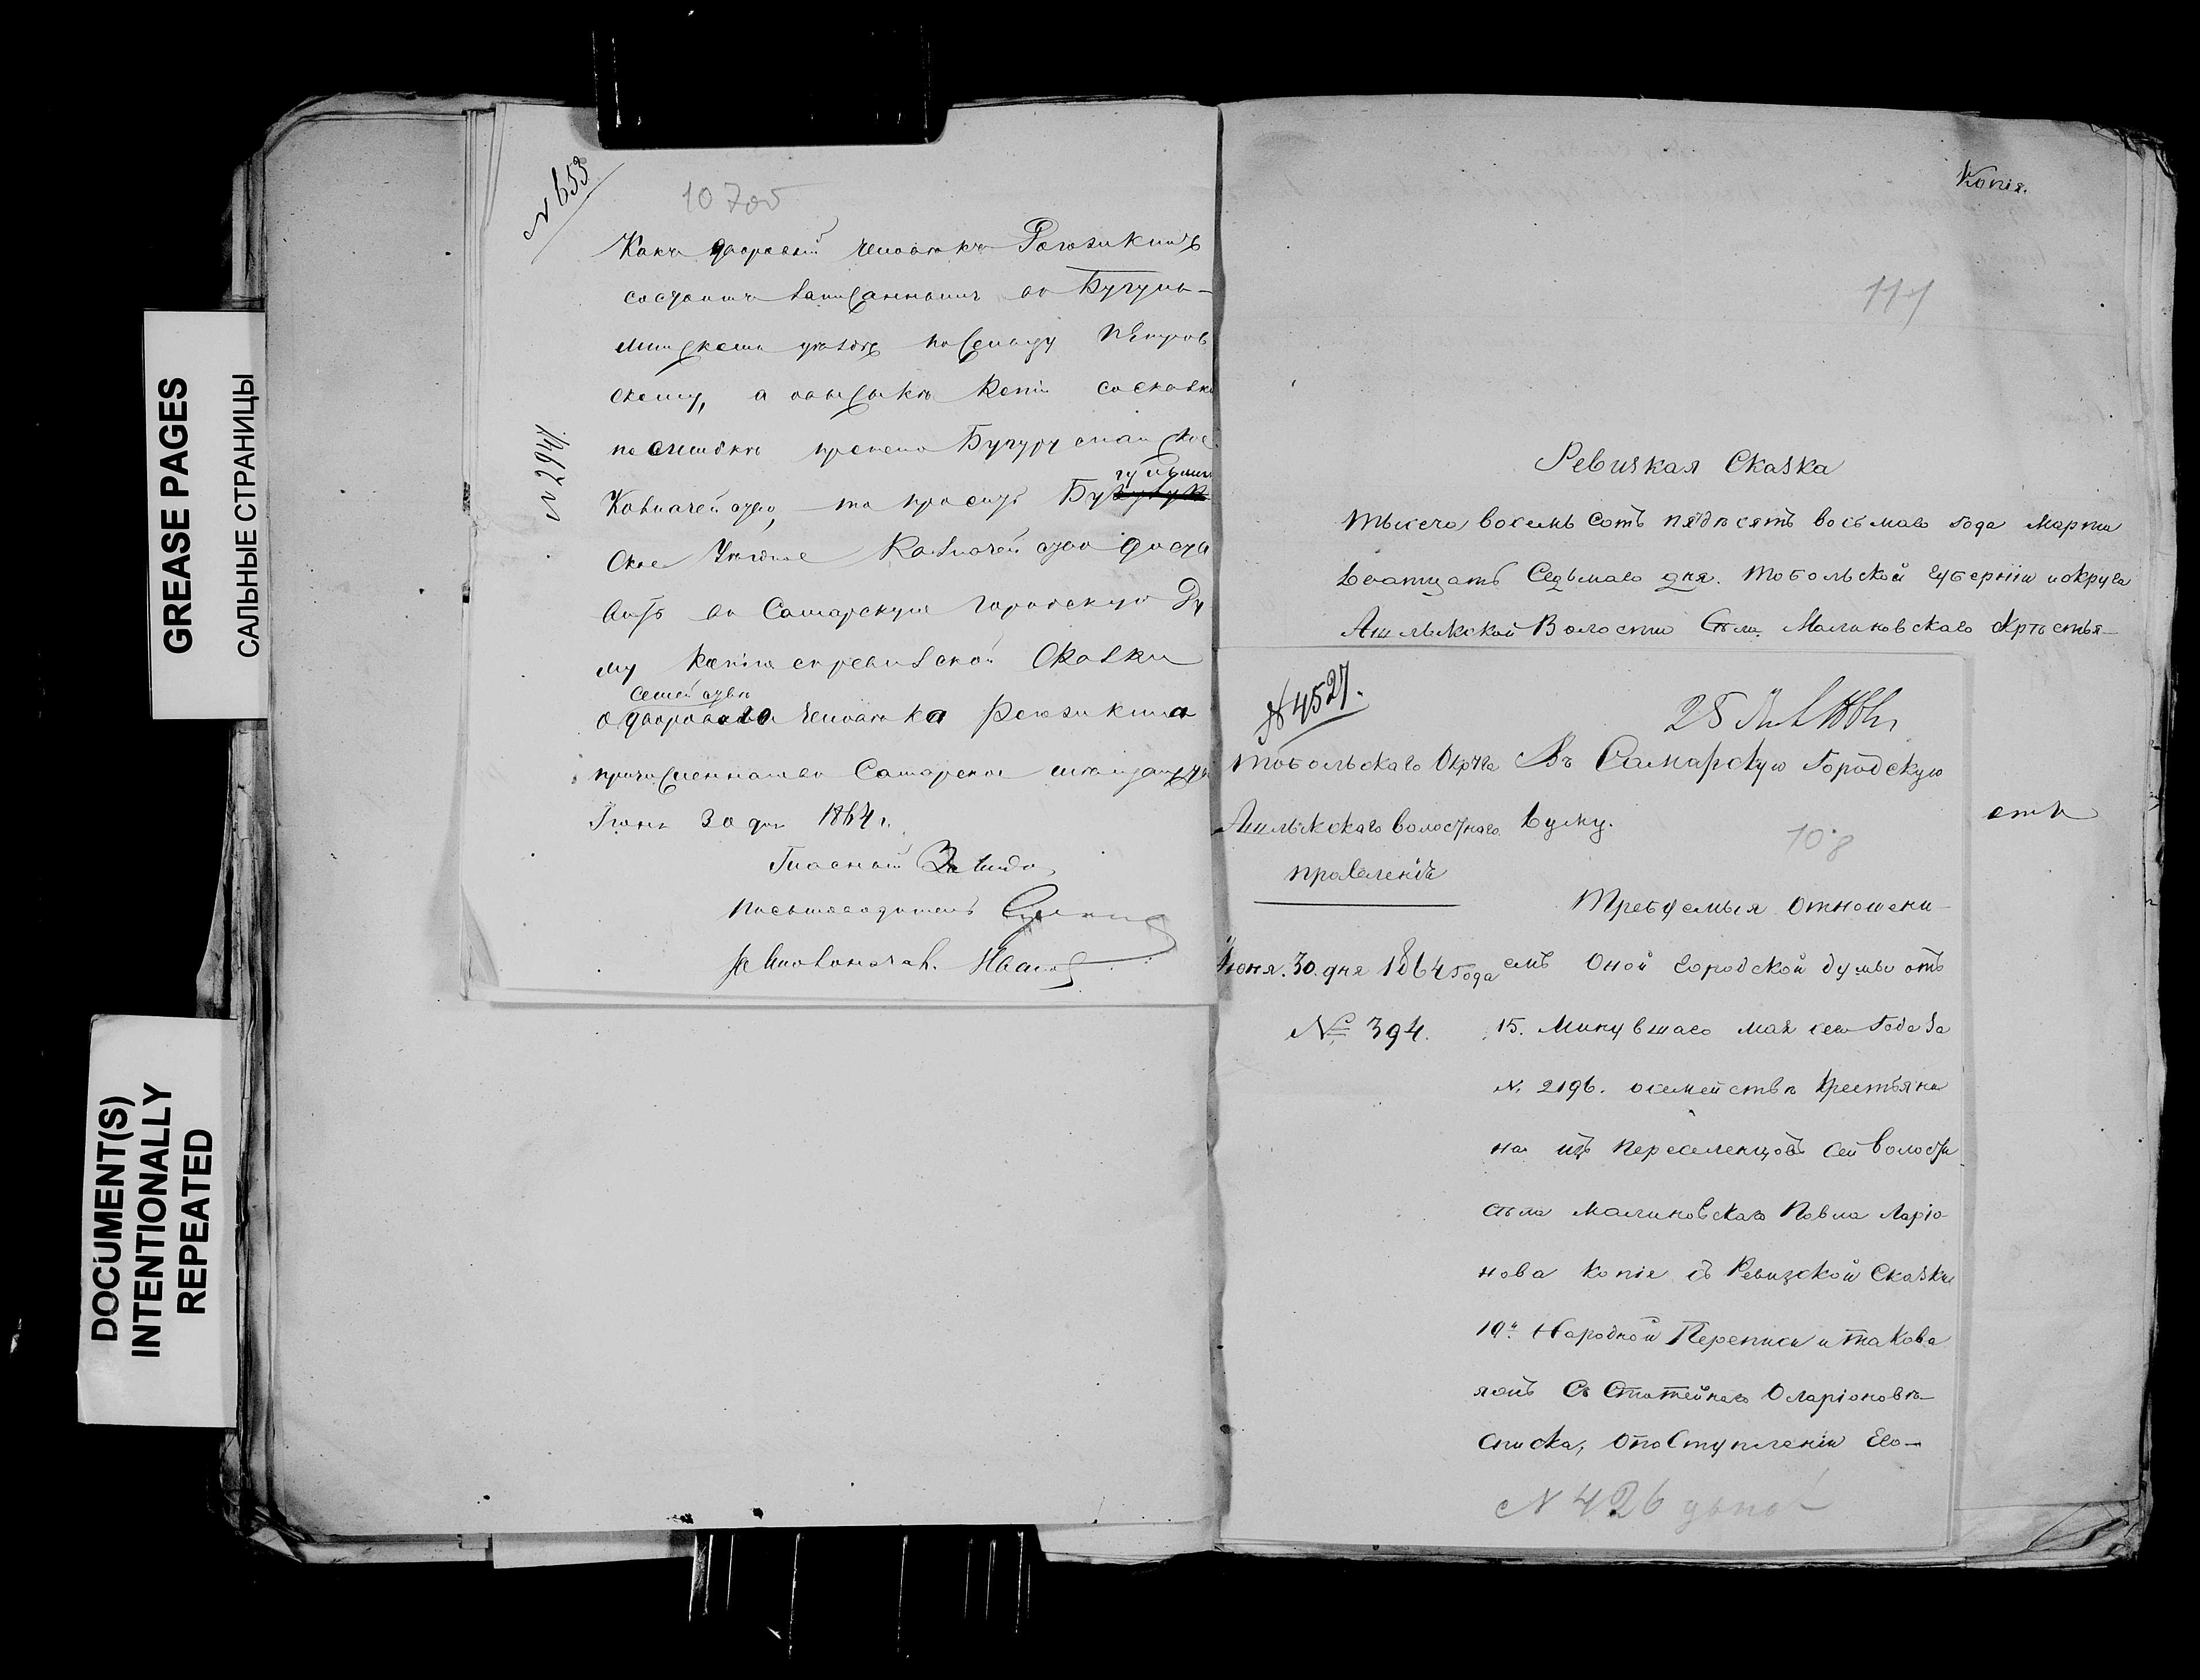 GREASE PAGES
САЛЬНЫЕ СТРАНИЦЫ
DOCUMENT(S)
INTENTIONALLY
REPEATED
N 653
107об
N 2947
Какъ дворовый человекъ
состоитъ записаннымъ по Бугуль-
минскому уезду по сельцу Петров
скому, а высылка копіи со сказки
по ошибке Бугурусланское
Казначейство, то проситъ Бугульмин
ское Уездное Казначейство доста
вить въ Самарскую Городскую Ду
му копію съ ревизской Сказки
семействе
о двороваго человека
причисленнаго въ Самарское
Іюня 30 дня 1864 г.
Гласный
Письмоводитель
Копія.
111
Ревизкая Сказка
Тысеча восемь сотъ пядѣсятъ восьмаго года марта
двацать Седьмаго дня. Тобольской губерніи и округа
Ашлыкской Волости Села Малиновскаго Крѣстья-
№ 4527.
Тобольскаго Округа
Ашлыкскаго волостнаго
правленія
Іюня 30 дня 1864 года
№ 394.
Въ Самарскую Городскую
Думу.
108
Требуемыя Отношені-
емъ Оной Городской думы отъ
15. Минувшаго мая сего Года За
N. 2196. о семействѣ Крестьяни
на изъ переселенцовъ сей волости
села Малиновскаго Павла Ларіо
нова копіе съ Ревизской Сказки
10й Народной Переписи и такова
яжъ Съ Статейнаго О Ларіоновѣ
списка, О поступленіи Его-
N 426
етъ